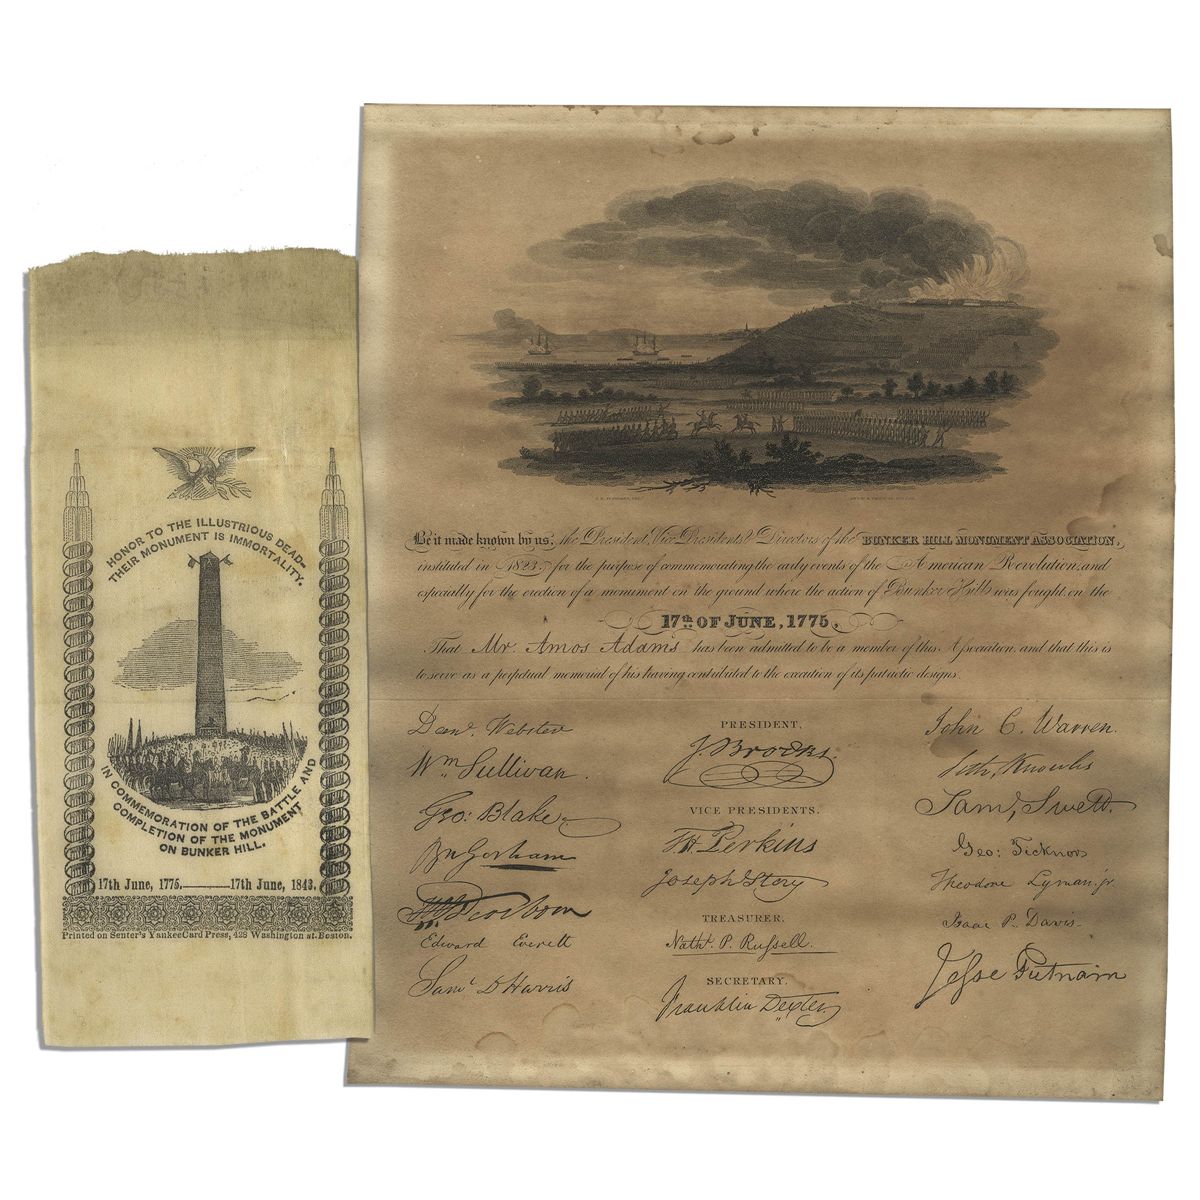 HONOR TO THE ILLUSTRIOUS DEAD—
THEIR MONUMENT IS IMMORTALITY.
IN COMMEMORATION OF THE BATTLE AND
COMPLETION OF THE MONUMENT
ON BUNKER HILL.
17th June, 1775.———17th June, 1843.
Printed on Senter's Yankee Card Press, 428 Washington st. Boston.
Be it made known by us, the President, Vice Presidents & Directors of the BUNKER HILL MONUMENT ASSOCIATION,
instituted in 1823, for the purpose of commemorating the early events of the American Revolution, and
especially for the erection of a monument on the ground where the action of Bunker Hill was fought, on the
17th OF JUNE, 1775,
That Mr. Amos Adams has been admitted to be a member of this Association, and that this is
to serve as a perpetual memorial of his having contributed to the execution of its patriotic designs.
Danl. Webster
Wm Sullivan.
Geo: Blake
Bn Gorham
Dearborn
Edward Everett
Saml D Harris
PRESIDENT,
J. Brooks.
VICE PRESIDENTS.
TH Perkins
Joseph Story
TREASURER,
Nathl. P. Russell.
SECRETARY,
Franklin Dexter
John C. Warren.
Seth Knowles
Saml Swett.
Geo: Ticknor
Theodore Lyman jr
Isaac P. Davis.
Jesse Putnam